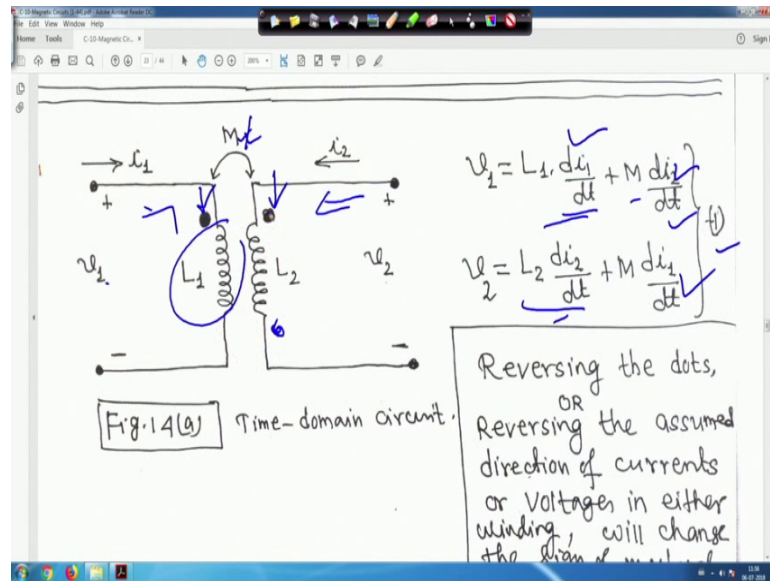 C-10-Magnetic Circuits (1-44).pdf - Adobe Acrobat Reader DC
File Edit View Window Help
Home Tools C-10-Magnetic Cir... × Sign I
23 / 44 200%
i1 M i2
+ +
v1 L1 L2 v2
- -
v1 = L1. di1/dt + M di2/dt
v2 = L2 di2/dt + M di1/dt
(1)
Fig.14(a) Time-domain circuit.
Reversing the dots,
OR
Reversing the assumed
direction of currents
or voltages in either
winding, will change
the sign of
11:56